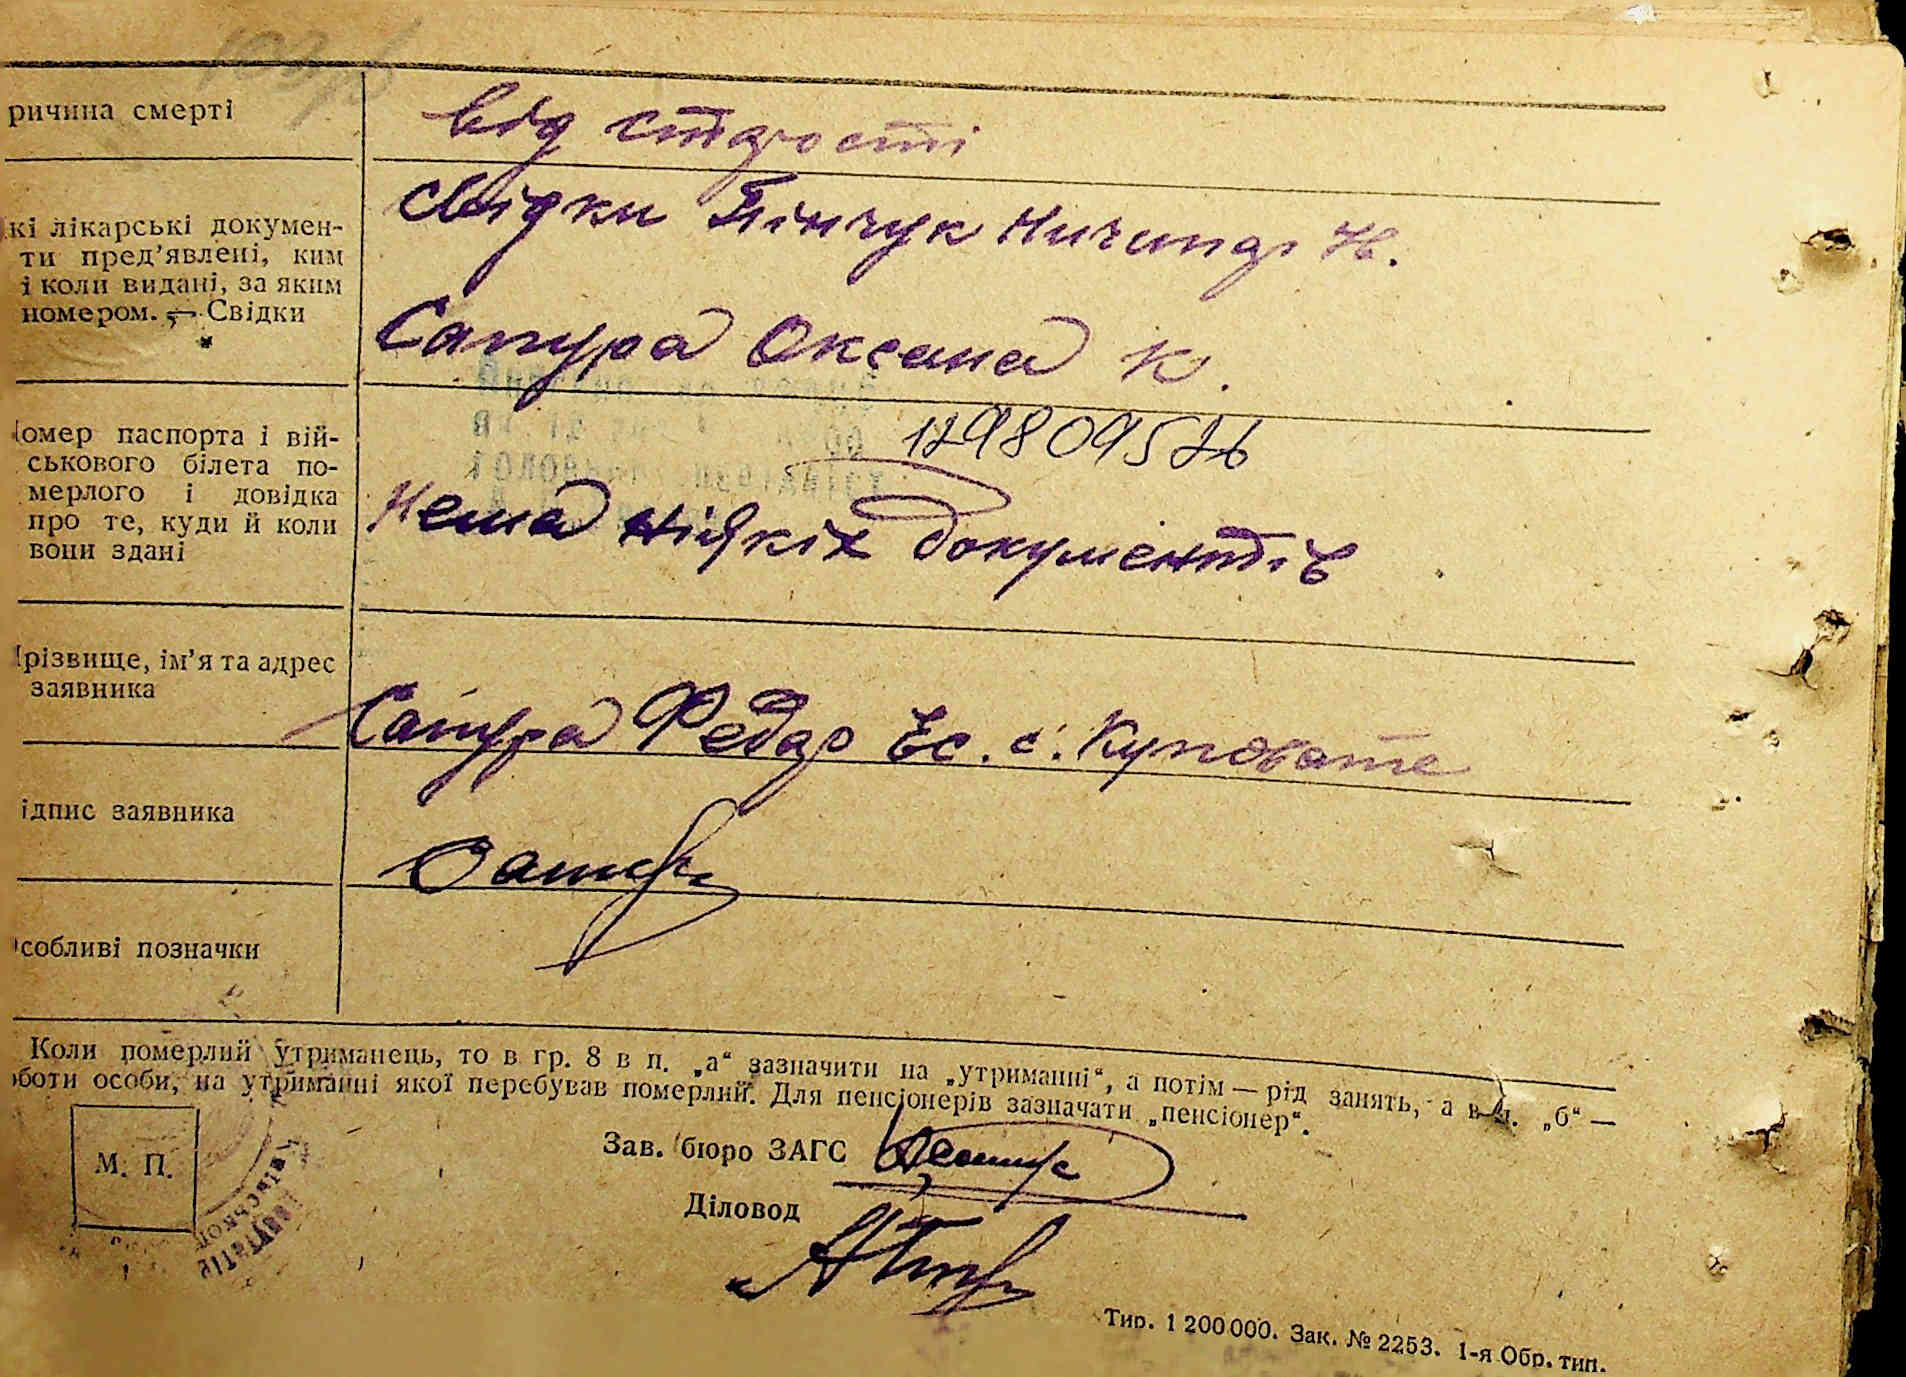 ричина смерті
від старости
кі лікарські докумен-
ти пред’явлені, ким
і коли видані, за яким
номером. — Свідки
свідки Пінчук Ничипір Н.
Сапура Оксана К.
омер паспорта і вій-
ськового білета по-
мерлого і довідка
про те, куди й коли
вони здані
129809526
Нема ніяких документів
різвище, ім’я та адрес
заявника
Сапура Федор Ес. с. Куповате
ідпис заявника
собливі позначки
Коли померлий утриманець, то в гр. 8 в п. „а“ зазначити на „утриманні“, а потім — рід занять, а в п. „б“ —
оботи особи, на утриманні якої перебував померлий. Для пенсіонерів зазначати „пенсіонер“.
М. П.
Зав. бюро ЗАГС
Діловод
Тип. 1 200 000. Зак. № 2253. 1-я Обр. тип.